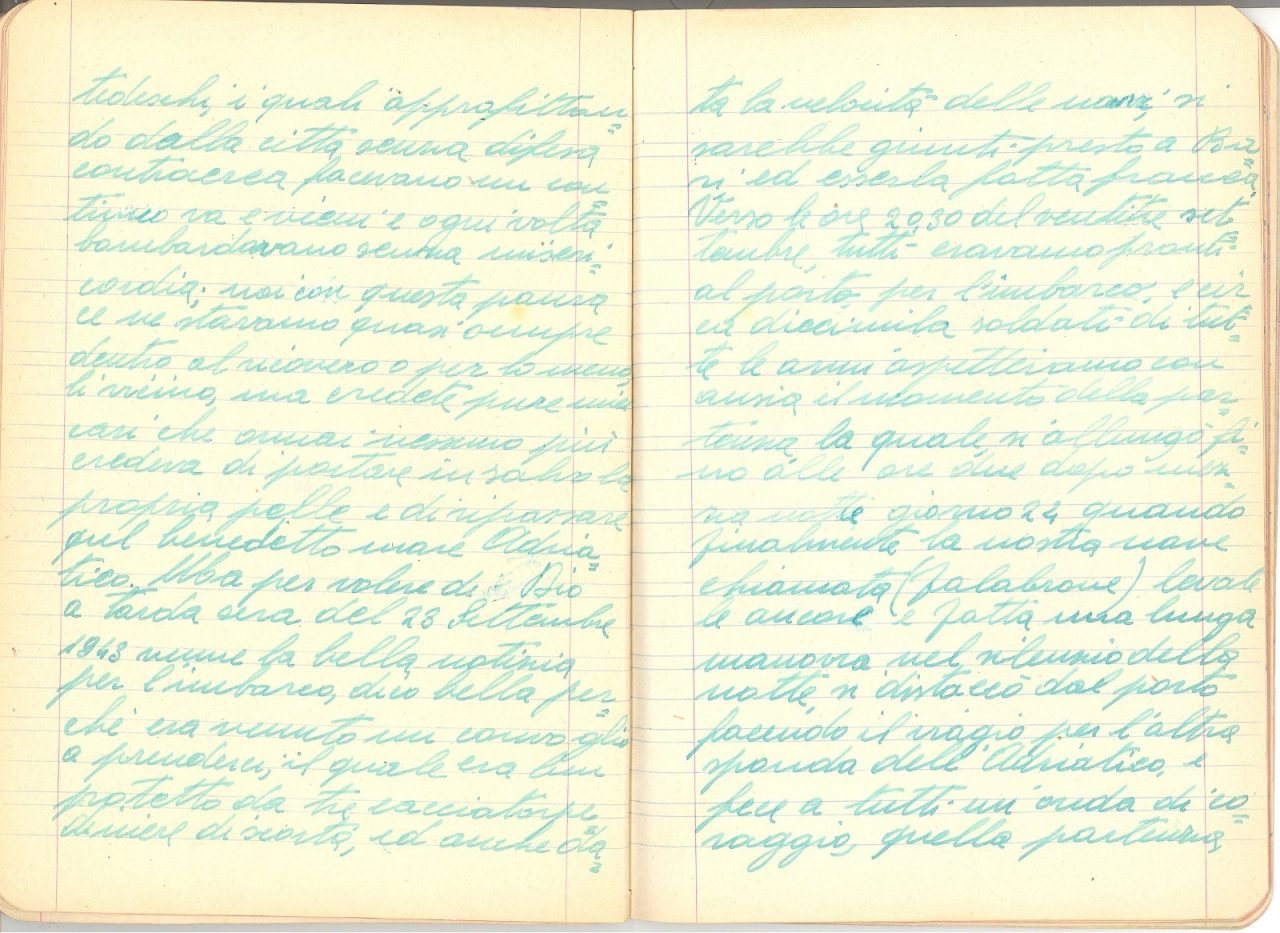 tedeschi, i quali approfittan=
do dalla città senza difesa
contraerea facevano un con=
tinuo va e vieni e ogni volta
bombardavano senza miseri=
cordia; noi con questa paura
ce ne stavamo quasi sempre
dentro al ricovero o per lo meno,
li vicino, ma credete pure miei
cari che ormai nessuno più
credeva di portare in salvo la
propria pelle e di ripassare
quel benedetto mare Adria=
tico. Ma per volere di Dio
a tarda sera del 23 Settembre
1943 venne la bella notizia
per l'imbarco, dico bella per=
chè era venuto un convoglio
a prenderci, il quale era ben
protetto da tre cacciatorpe=
diniere di scorta, ed anche da=
ta la velocità delle navi, si
sarebbe giunti presto a Ba=
ri ed esserla fatta franca,
Verso le ore 20,30 del ventitre set=
tembre, tutti eravamo pronti
al porto per l'imbarco, e cir=
ca diecimila soldati di tut=
te le armi aspettiamo con
ansia il momento della par=
tenza la quale si allungò fi=
no alle ore due dopo mez=
za notte giorno 24 quando
finalmente la nostra nave
chiamata (falabrone) levate
le ancore e fatta una lunga
manovra nel silenzio della
notte, si distaccò dal porto
facendo il viagio per l'altra
sponda dell'Adriatico, e
fece a tutti un'onda di co=
raggio, quella partenza